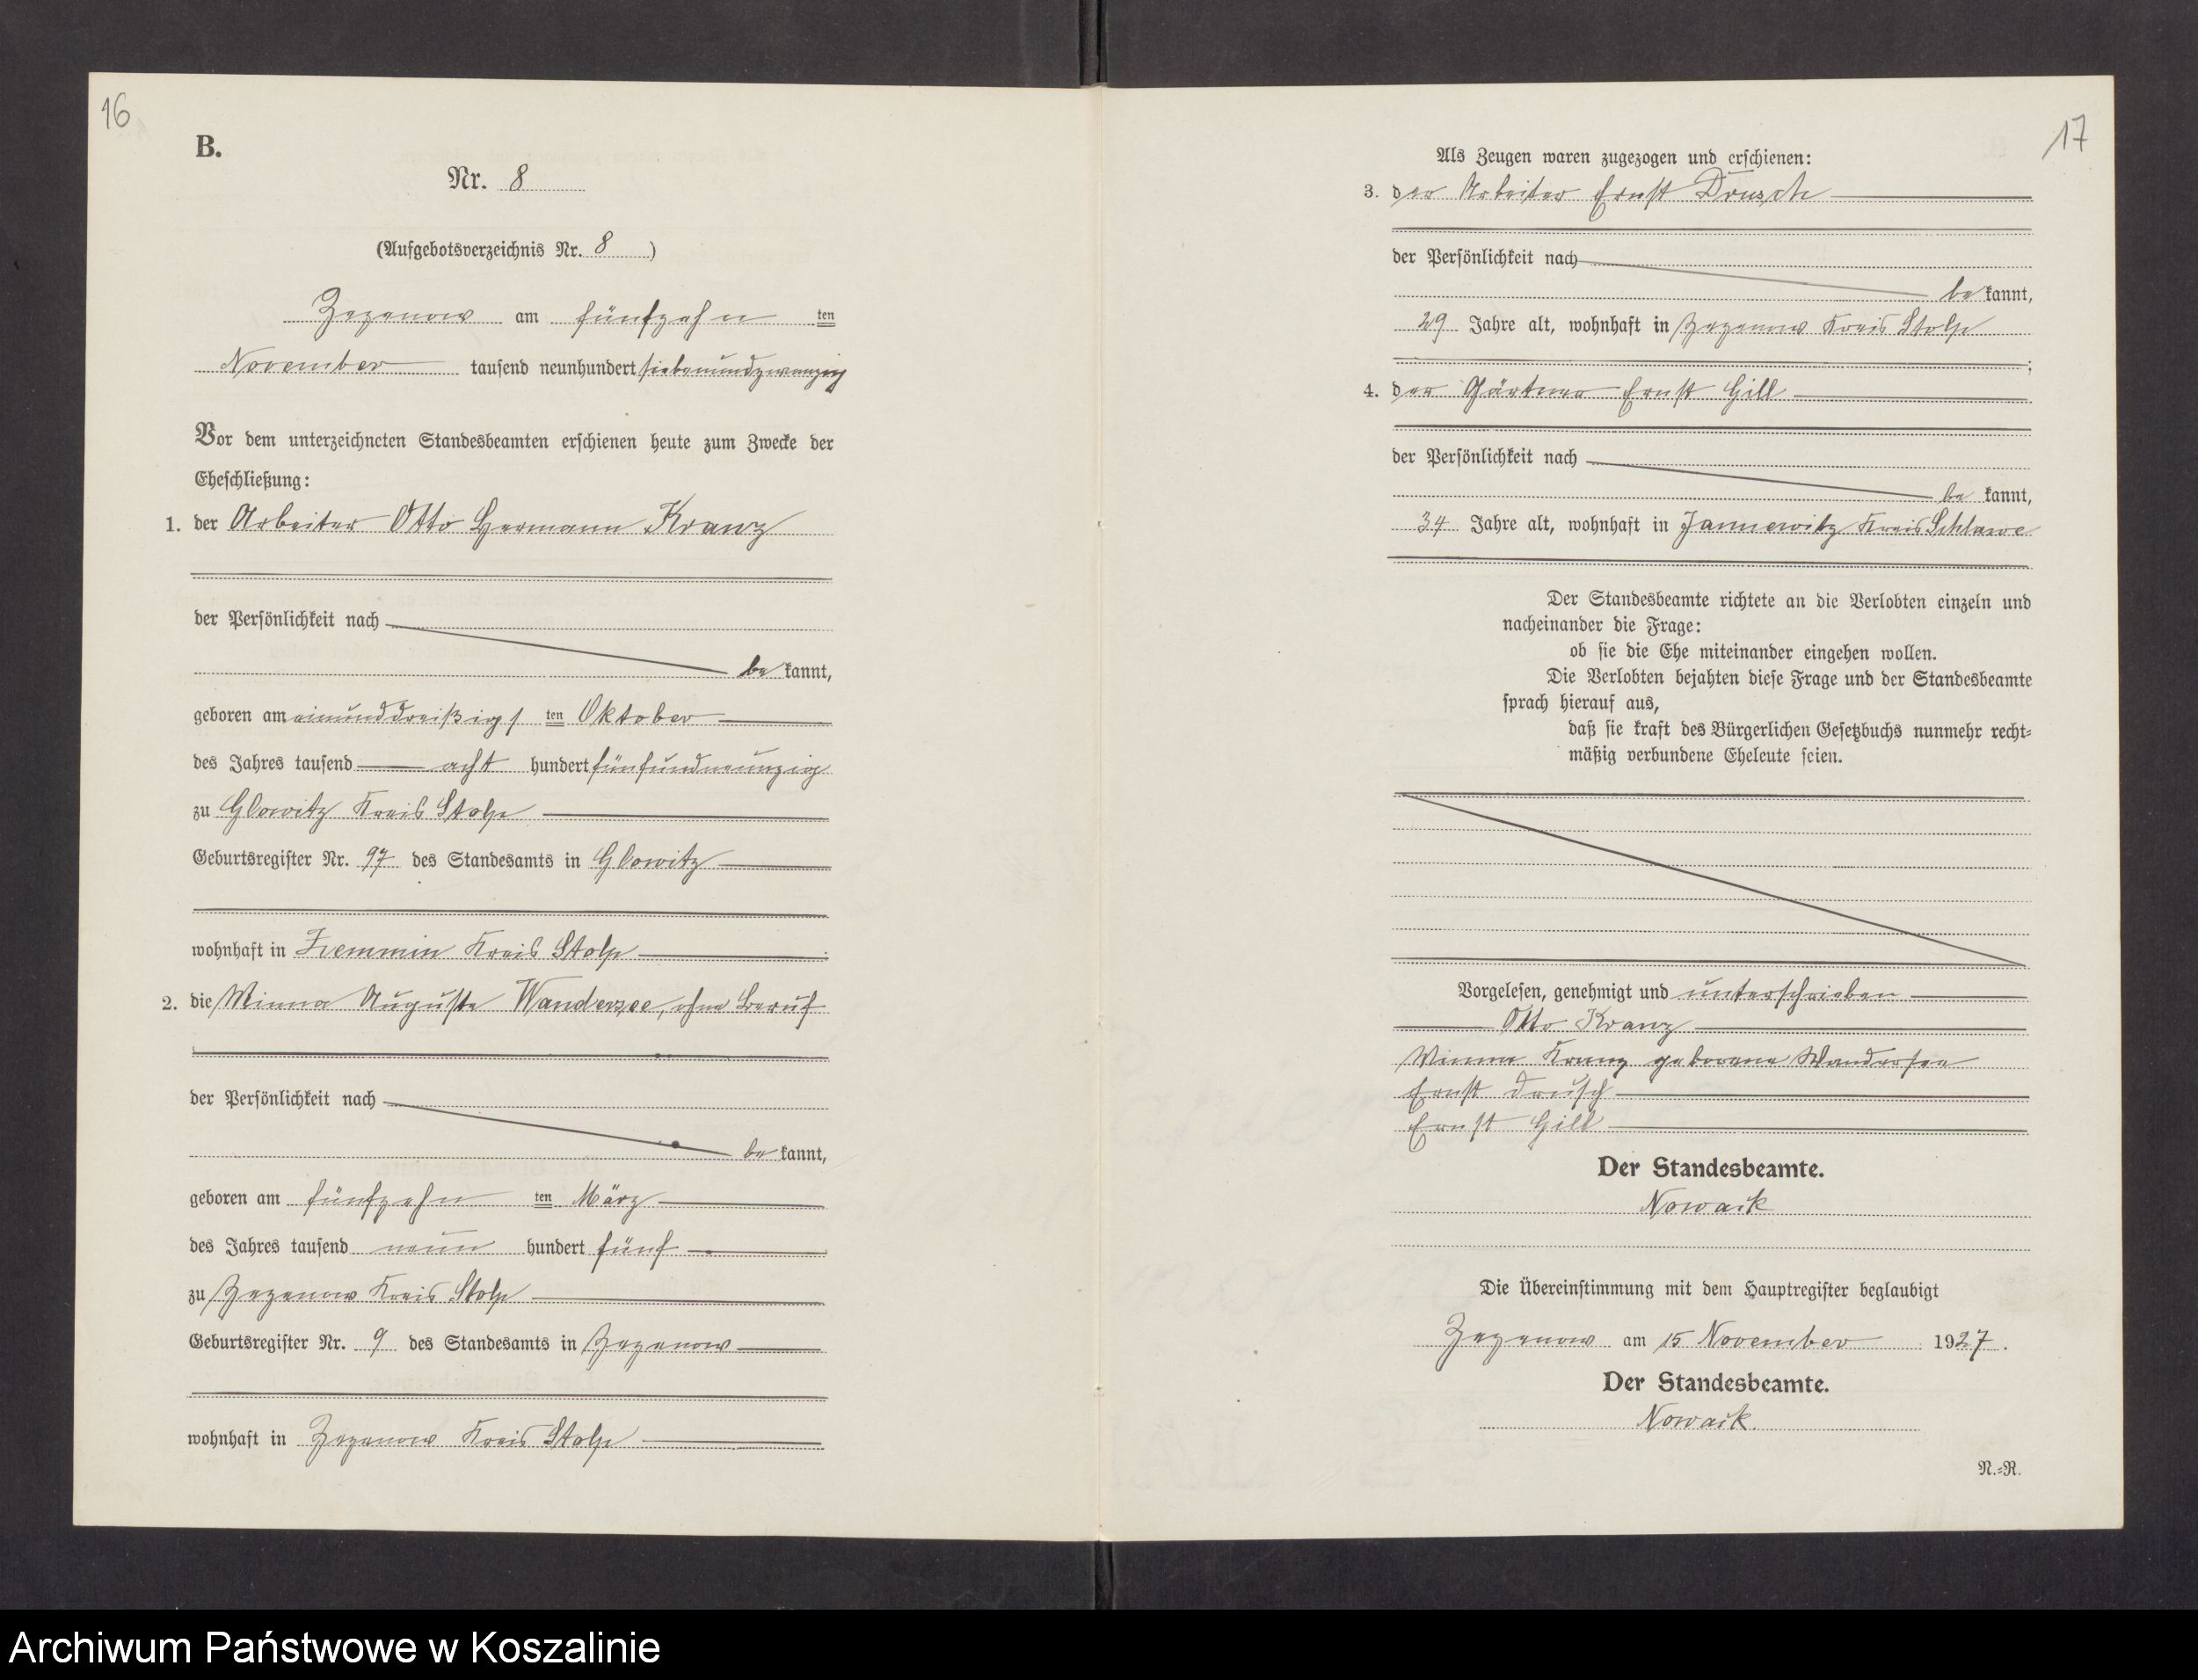 16
B.
Nr. 8
(Aufgebotsverzeichnis Nr. 8)
Zezenow am fünfzehn ten
November tausend neunhundert siebenundzwanzig
Vor dem unterzeichneten Standesbeamten erschienen heute zum Zwecke der
Eheschließung:
1. der Arbeiter Otto Hermann Kranz
der Persönlichkeit nach
be kannt,
geboren am einunddreißigs ten Oktober
des Jahres tausend acht hundert fünfundneunzig
zu Glowitz Kreis Stolp
Geburtsregister Nr. 97 des Standesamts in Glowitz
wohnhaft in Zemmin Kreis Stolp
2. die Minna Auguste Wandersee, ohne Beruf
der Persönlichkeit nach
be kannt,
geboren am fünfzehn ten März
des Jahres tausend neun hundert fünf
zu Zezenow Kreis Stolp
Geburtsregister Nr. 9 des Standesamts in Zezenow
wohnhaft in Zezenow Kreis Stolp
17
Als Zeugen waren zugezogen und erschienen:
3. der Arbeiter Ernst Drusch
der Persönlichkeit nach
be kannt,
29 Jahre alt, wohnhaft in Zezenow Kreis Stolp
;
4. der Gärtner Ernst Gill
der Persönlichkeit nach
be kannt,
34 Jahre alt, wohnhaft in Jannewitz Kreis Schlawe
Der Standesbeamte richtete an die Verlobten einzeln und
nacheinander die Frage:
ob sie die Ehe miteinander eingehen wollen.
Die Verlobten bejahten diese Frage und der Standesbeamte
sprach hierauf aus,
daß sie kraft des Bürgerlichen Gesetzbuchs nunmehr recht-
mäßig verbundene Eheleute seien.
Vorgelesen, genehmigt und unterschrieben
Otto Kranz
Minna Kranz geborene Wandersee
Ernst Drusch
Ernst Gill
Der Standesbeamte.
Nowack
Die Übereinstimmung mit dem Hauptregister beglaubigt
Zezenow am 15 November 1927.
Der Standesbeamte.
Nowack.
N.-R.
Archiwum Państwowe w Koszalinie